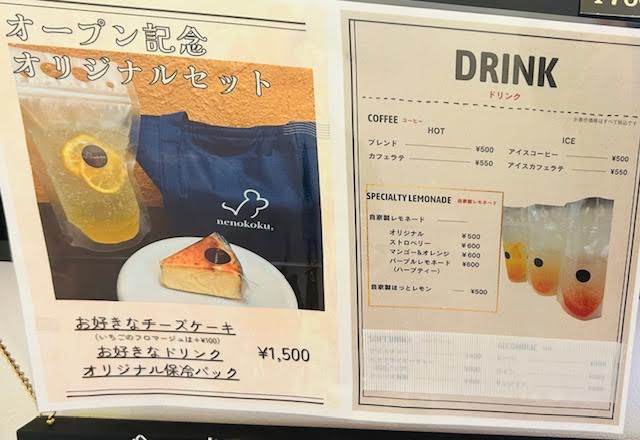 オープン記念
オリジナルセット
nenokoku.
お好きなチーズケーキ
(いちごのフロマージュは+¥100)
お好きなドリンク
オリジナル保冷パック
¥1,500
DRINK
ドリンク
※表示価格はすべて税込です
COFFEE コーヒー
HOT
ブレンド ¥500
カフェラテ ¥550
ICE
アイスコーヒー ¥500
アイスカフェラテ ¥550
SPECIALTY LEMONADE 自家製レモネード
自家製レモネード
オリジナル ¥500
ストロベリー ¥600
マンゴー&オレンジ ¥600
パープルレモネード ¥600
(ハーブティー)
自家製ほっとレモン ¥500